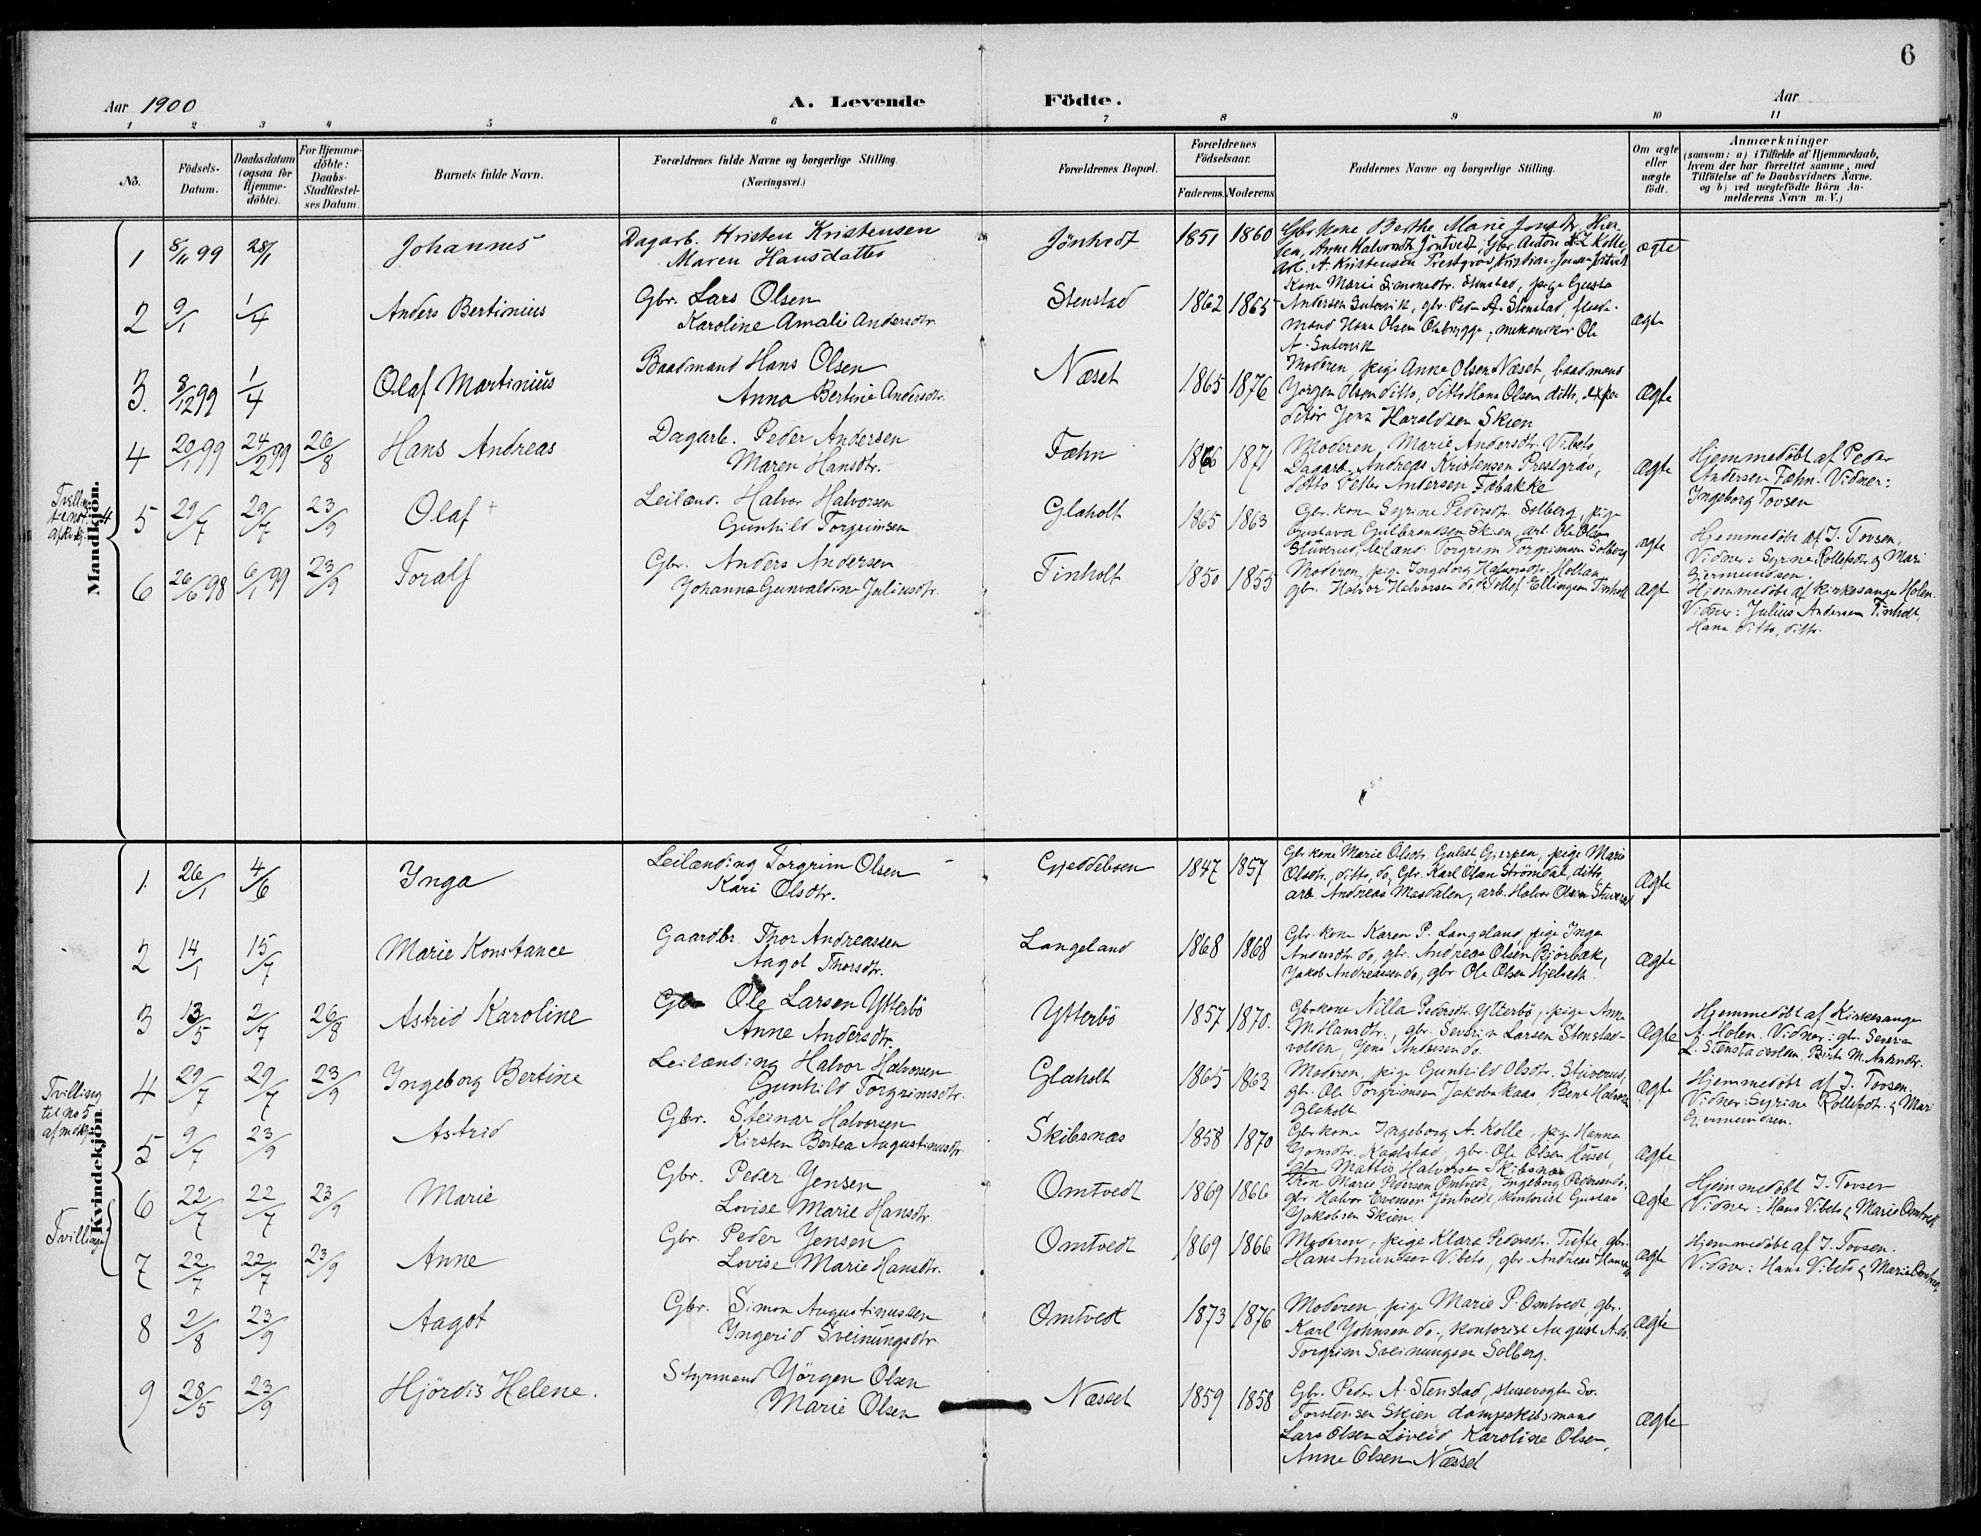 6
Aar 1900
A. Levende Födte.
Aar
1 2 3 4 5 6 7 8 9 10 11
No.
Födsels-Datum.
Daabsdatum (ogsaa for Hjemme-döbte).
For Hjemme-döbte: Daabs-Stadfæstel-ses Datum.
Barnets fulde Navn.
Forældrenes fulde Navne og borgerlige Stilling.
(Næringsvei.)
Forældrenes Bopæl.
Forældrenes Födselsaar.
Faderens. Moderens.
Faddernes Navne og borgerlige Stilling.
Om ægte eller uægte födt.
Anmærkninger
(saasom: a) i Tilfælde af Hjemmedaab,
hvem der har forrettet samme, med
Tilföielse af to Daabsvidners Navne.
og b) ved uægtefödte Börn An-
melderens Navn m. V.)
Mandkjön.
1 8/11 99 28/1 Johannes
Dagarb. Kristen Kristensen
Maren Hansdatter
Jöntvedt 1851 1860
Gbr kone Berthe Marie Jonsdtr.
Anne Halvorsdtr Jöntvedt, Gbr. Anton Kolle,
arb. A. Kristensen Prestgrav, Kristian Jensen Jöntvedt
ægte
2 9/1 1/4 Anders Bertinius
Gbr. Lars Olsen
Karoline Amalie Andersdtr.
Stenstad 1862 1865
Kone Marie Simonsdtr. Stenstad, pige Gusta
Andersen, gbr. Peder A. Stenstad,
mand Hans Olsen, mekaniker Ole
A.
ægte
3. 8/12 99 1/4 Olaf Martinius
Baadmand Hans Olsen
Anna Bertine Andersdtr.
Næset 1865 1876
Moderen, pige Anne Olsen Næset, baadmand
Jörgen Olsen ditto, ditto Hans Olsen ditto, expe-
ditör Jens Haraldsen Skien
ægte
4 20/1 99 24/2 99 26/8 Hans Andreas
Dagarb. Peder Andersen
Maren Hansdtr.
Fæhn 1866 1871
Moderen, Marie Andersdtr. Vibeto,
Dagarb. Andreas Kristensen Prestgrav,
ditto Andersen Fæbakke
ægte
Hjemmedöbt af Peder
Andersen Fæhn. Vidner:
Ingeborg Tovsen
5 29/7 29/7 23/9 Olaf +
Leilænd. Halvor Halvorsen
Gunhild Torgrimsen
Glaholt 1865 1863
Gbr. kone Syrine Pedersdtr. Solberg, pige
Gustava Gulbrandsen Skien, arb. Ole Olsen
Stuverud, leilænd. Torgrim Torgrimsen Solberg
ægte
Hjemmedöbt af J. Tovsen,
Vidner: Syrine Rollefsdtr. & Mari
Gjermundsen.
6 26/6 98 6/1 99 23/9 Toralf
Gbr. Anders Andersen
Johanne Gunvaldine Juliusdtr.
Tinholt 1850 1855
Moderen, pige Ingeborg Halvorsdtr.
gbr. Halvor Halvorsen do, Detlef Ellingsen Tinholt
ægte
Hjemmedöbt af Kirkesanger Holen.
Vidner: Julius Andersen Tinholt,
Hans ditto, ditto.
Kvindekjön.
1. 26/1 4/6 Inga
Leilænding Torgrim Olsen
Kari Olsdtr.
Gjeddeboen 1847 1857
Gbr kone Marie Olsdtr. Gulset Gjerpen, pige Marie
Olsdtr, ditto, do, Gbr. Karl Olsen Strömdal, ditto,
arb. Andreas Mosdalen, arb. Halvor Olsen Stuverud
Ægte
2 14/1 15/7 Marie Konstance
Gaardbr. Thor Andreassen
Aagot Thorsdtr.
Langeland 1868 1868
Gbr. kone Karen P. Langeland, pige Inga
Andersdtr. do, gbr. Andreas Olsen Björbæk,
Jakob Andreassen do, gbr Ole Olsen Hjelseth
ægte
3 13/5 2/7 26/8 Astrid Karoline
Gbr Ole Larsen Ytterbö
Anne Andersdtr.
Ytterbö 1857 1870.
Gbr kone Nilla Pedersdtr Ytterbö, pige Anne
M. Hansdtr, gbr. Severin Larsen Stenstad-
volden, Jens Andersen do.
ægte
Hjemmedöbt af Kirkesanger
A. Holen. Vidner: gbr. Severin
L. Stenstadvolden, Birte M. Andersdtr.
Tvilling
til no 5
af mdkj
4 29/7 29/7 23/9 Ingeborg Bertine
Leilænding Halvor Halvorsen
Gunhild Torgrimsdtr.
Glaholt 1865 1863
Moderen, pige Gunhild Olsdtr. Stuverud,
gbr. Ole Torgrimsen Jakobskaas, Bent Halvorsen
Glaholt
Ægte
Hjemmedöbt af J. Tovsen,
Vidner: Syrine Rollefsdtr. & Mari
Gjermundsen.
5 9/7 23/9 Astrid
Gbr. Steinar Halvorsen
Kirsten Bertea Augustinusdtr.
Skibsnæs 1858 1870
Gbr kone Ingeborg A. Kolle, pige Hanna
Jonsdtr. Kaalstad, gbr. Ole Olsen Huset,
gbr. Mattis Halvorsen Skibsnæs
ægte
Tvillinger
6 22/7 22/7 23/9 Marie
Gbr. Peder Jensen
Lovise Marie Hansdtr
Omtvedt 1869 1866
Kone Marie Pedersen Omtvedt, Ingeborg Pedersen do,
gbr Halvor Evensen Jöntvedt, kontorist Gustav
Jakobsen Skien.
ægte
Hjemmedöbt J. Tovsen
Vidner: Hans Vibeto & Marie Omtvedt
7 22/7 22/7 23/9 Anne
Gbr. Peder Jensen
Lovise Marie Hansdtr.
Omtvedt 1869 1866
Moderen, pige Klara Pedersdtr. Tufte, gbr.
Hans Amundsen Vibeto, gbr. Andreas Hansen
ægte
Hjemmedöbt af J. Tovsen.
Vidner: Hans Vibeto & Marie Omtvedt
8 2/8 23/9 Aagot
Gbr. Simon Augustinussen
Yngerid Sveinungsdtr.
Omtvedt 1873 1876
Moderen, pige Marie P. Omtvedt, gbr.
Karl Johnsen do., kontorist August A. do.
Torgrim Sveinungsen Solberg.
ægte
9 28/5 23/9 Hjördis Helene.
Styrmand Jörgen Olsen
Marie Olsen
Næsset 1859 1858
Gbr. Peder A. Stenstad, slusevogter Sv.
Torstensen Skien, dampskibsmand
Lars Olsen Löveid, Karoline Olsen,
Anne Olsen Næsset
ægte